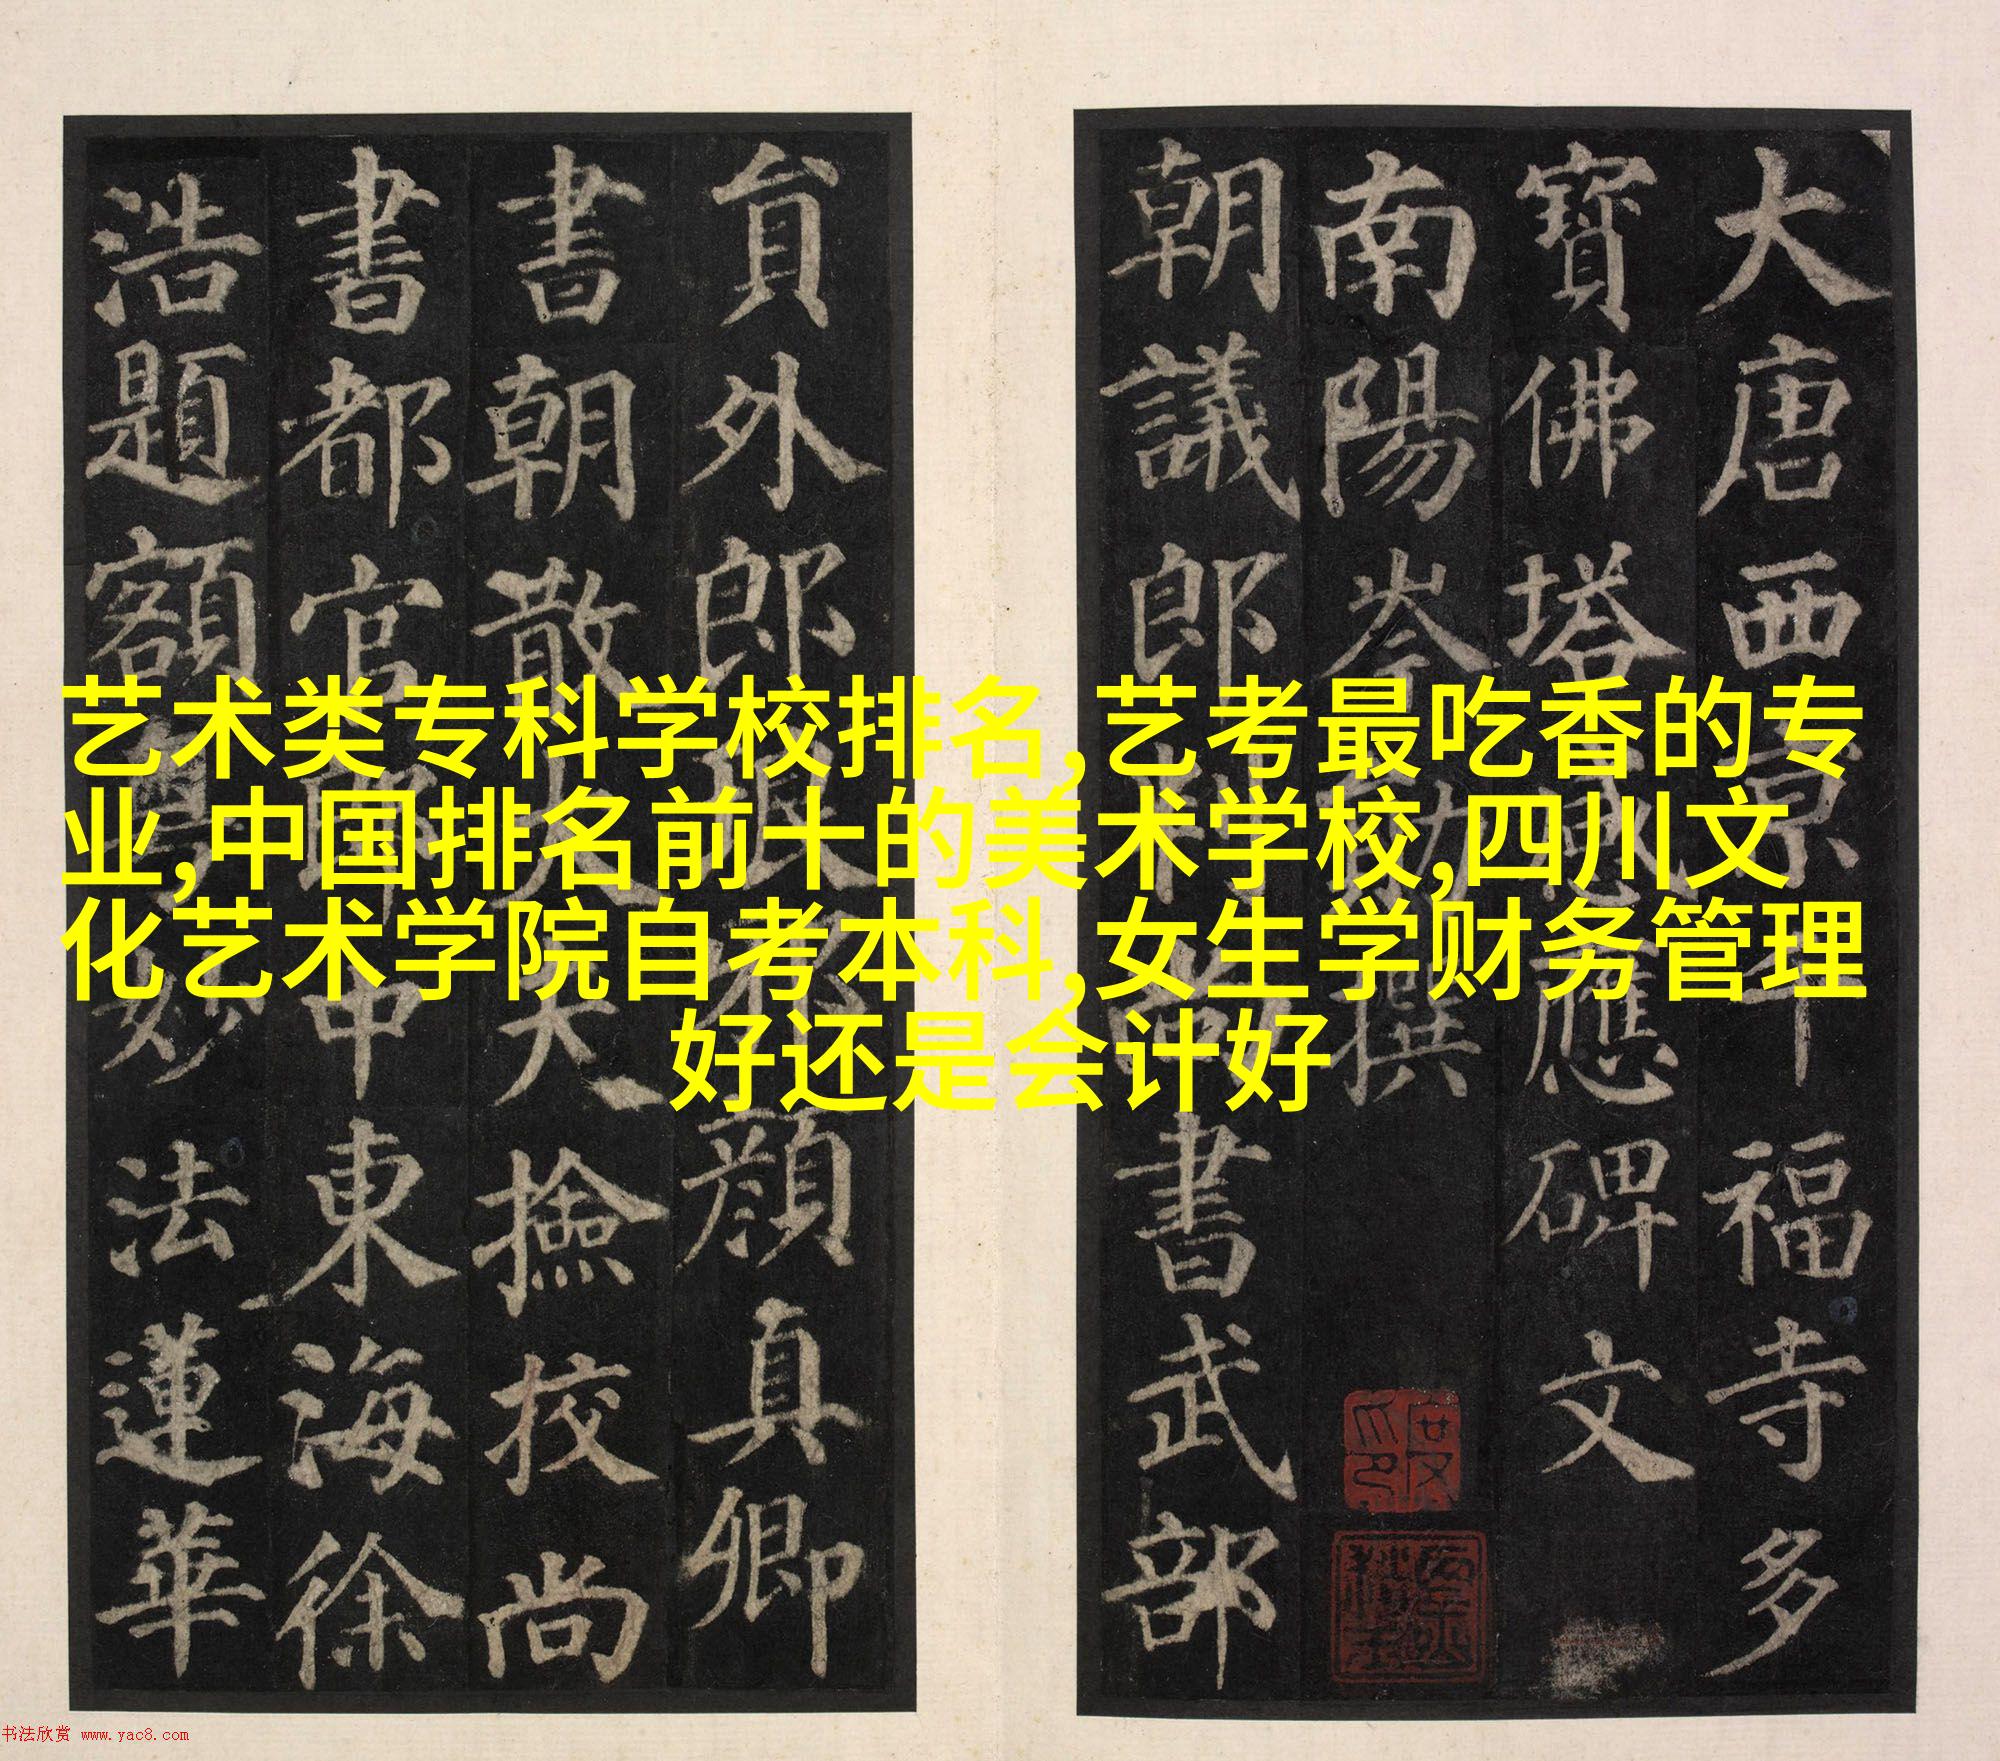 大唐西京千福寺多
寶佛塔感應碑文
南陽岑勛撰
朝議郎判尚書武部
貟外郎琅邪顏真卿
書朝散大夫撿校尚
書都官郎中東海徐
浩題額粵妙法蓮華
艺术类专科学校排名,艺考最吃香的专
业,中国排名前十的美术学校,四川文
化艺术学院自考本科,女生学财务管理
好还是会计好
书法欣赏 www.yac8.com